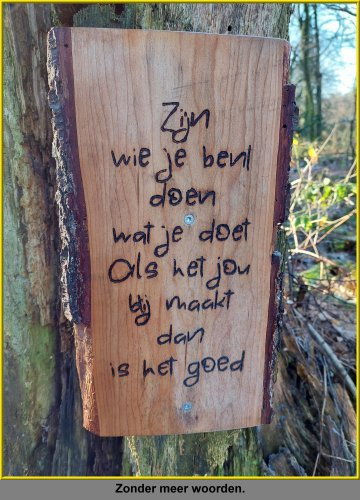 Zijn
wie je bent
doen
wat je doet
Als het jou
blij maakt
dan
is het goed
Zonder meer woorden.